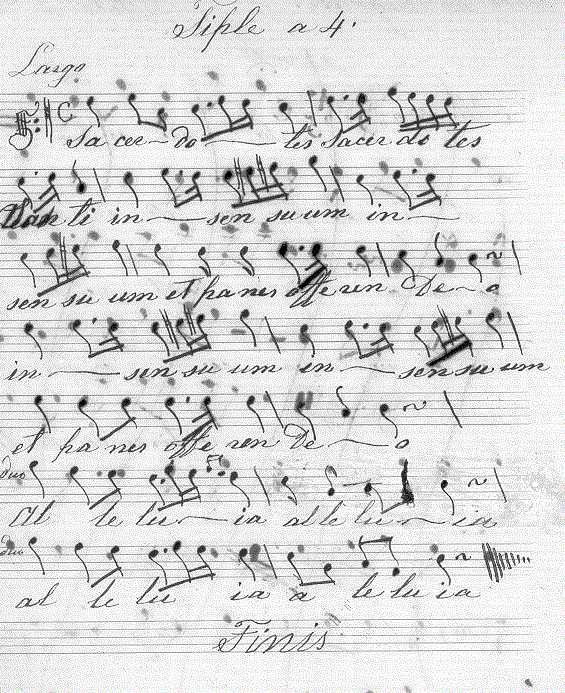 Tiple a 4.
Largo
Sa cer - do - tes sacer do tes
ti in - sen su um in -
sen su um et pa nes offe ren De - o
in - sen su um in - sen su um
et pa nes offe ren De - o
duo
Al le lu - ia al le lu - ia
duo
al le lu ia a le lu ia
Finis